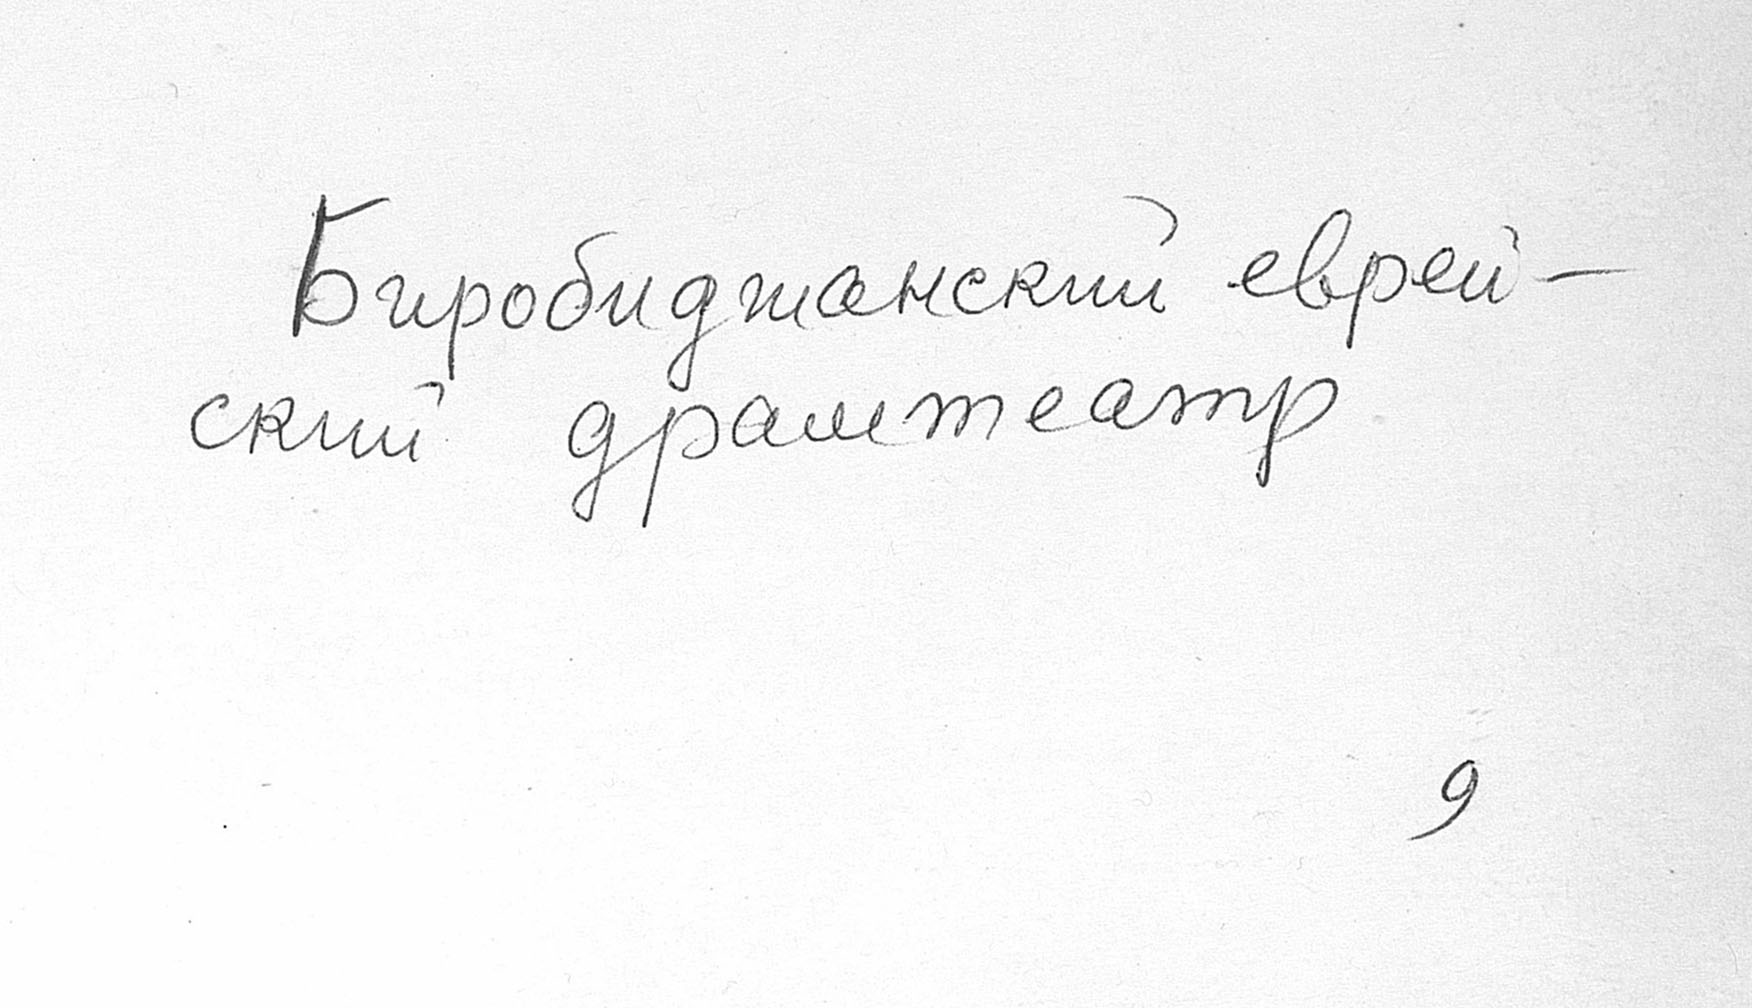 Биробиджанский еврей-
ский драмтеатр
9